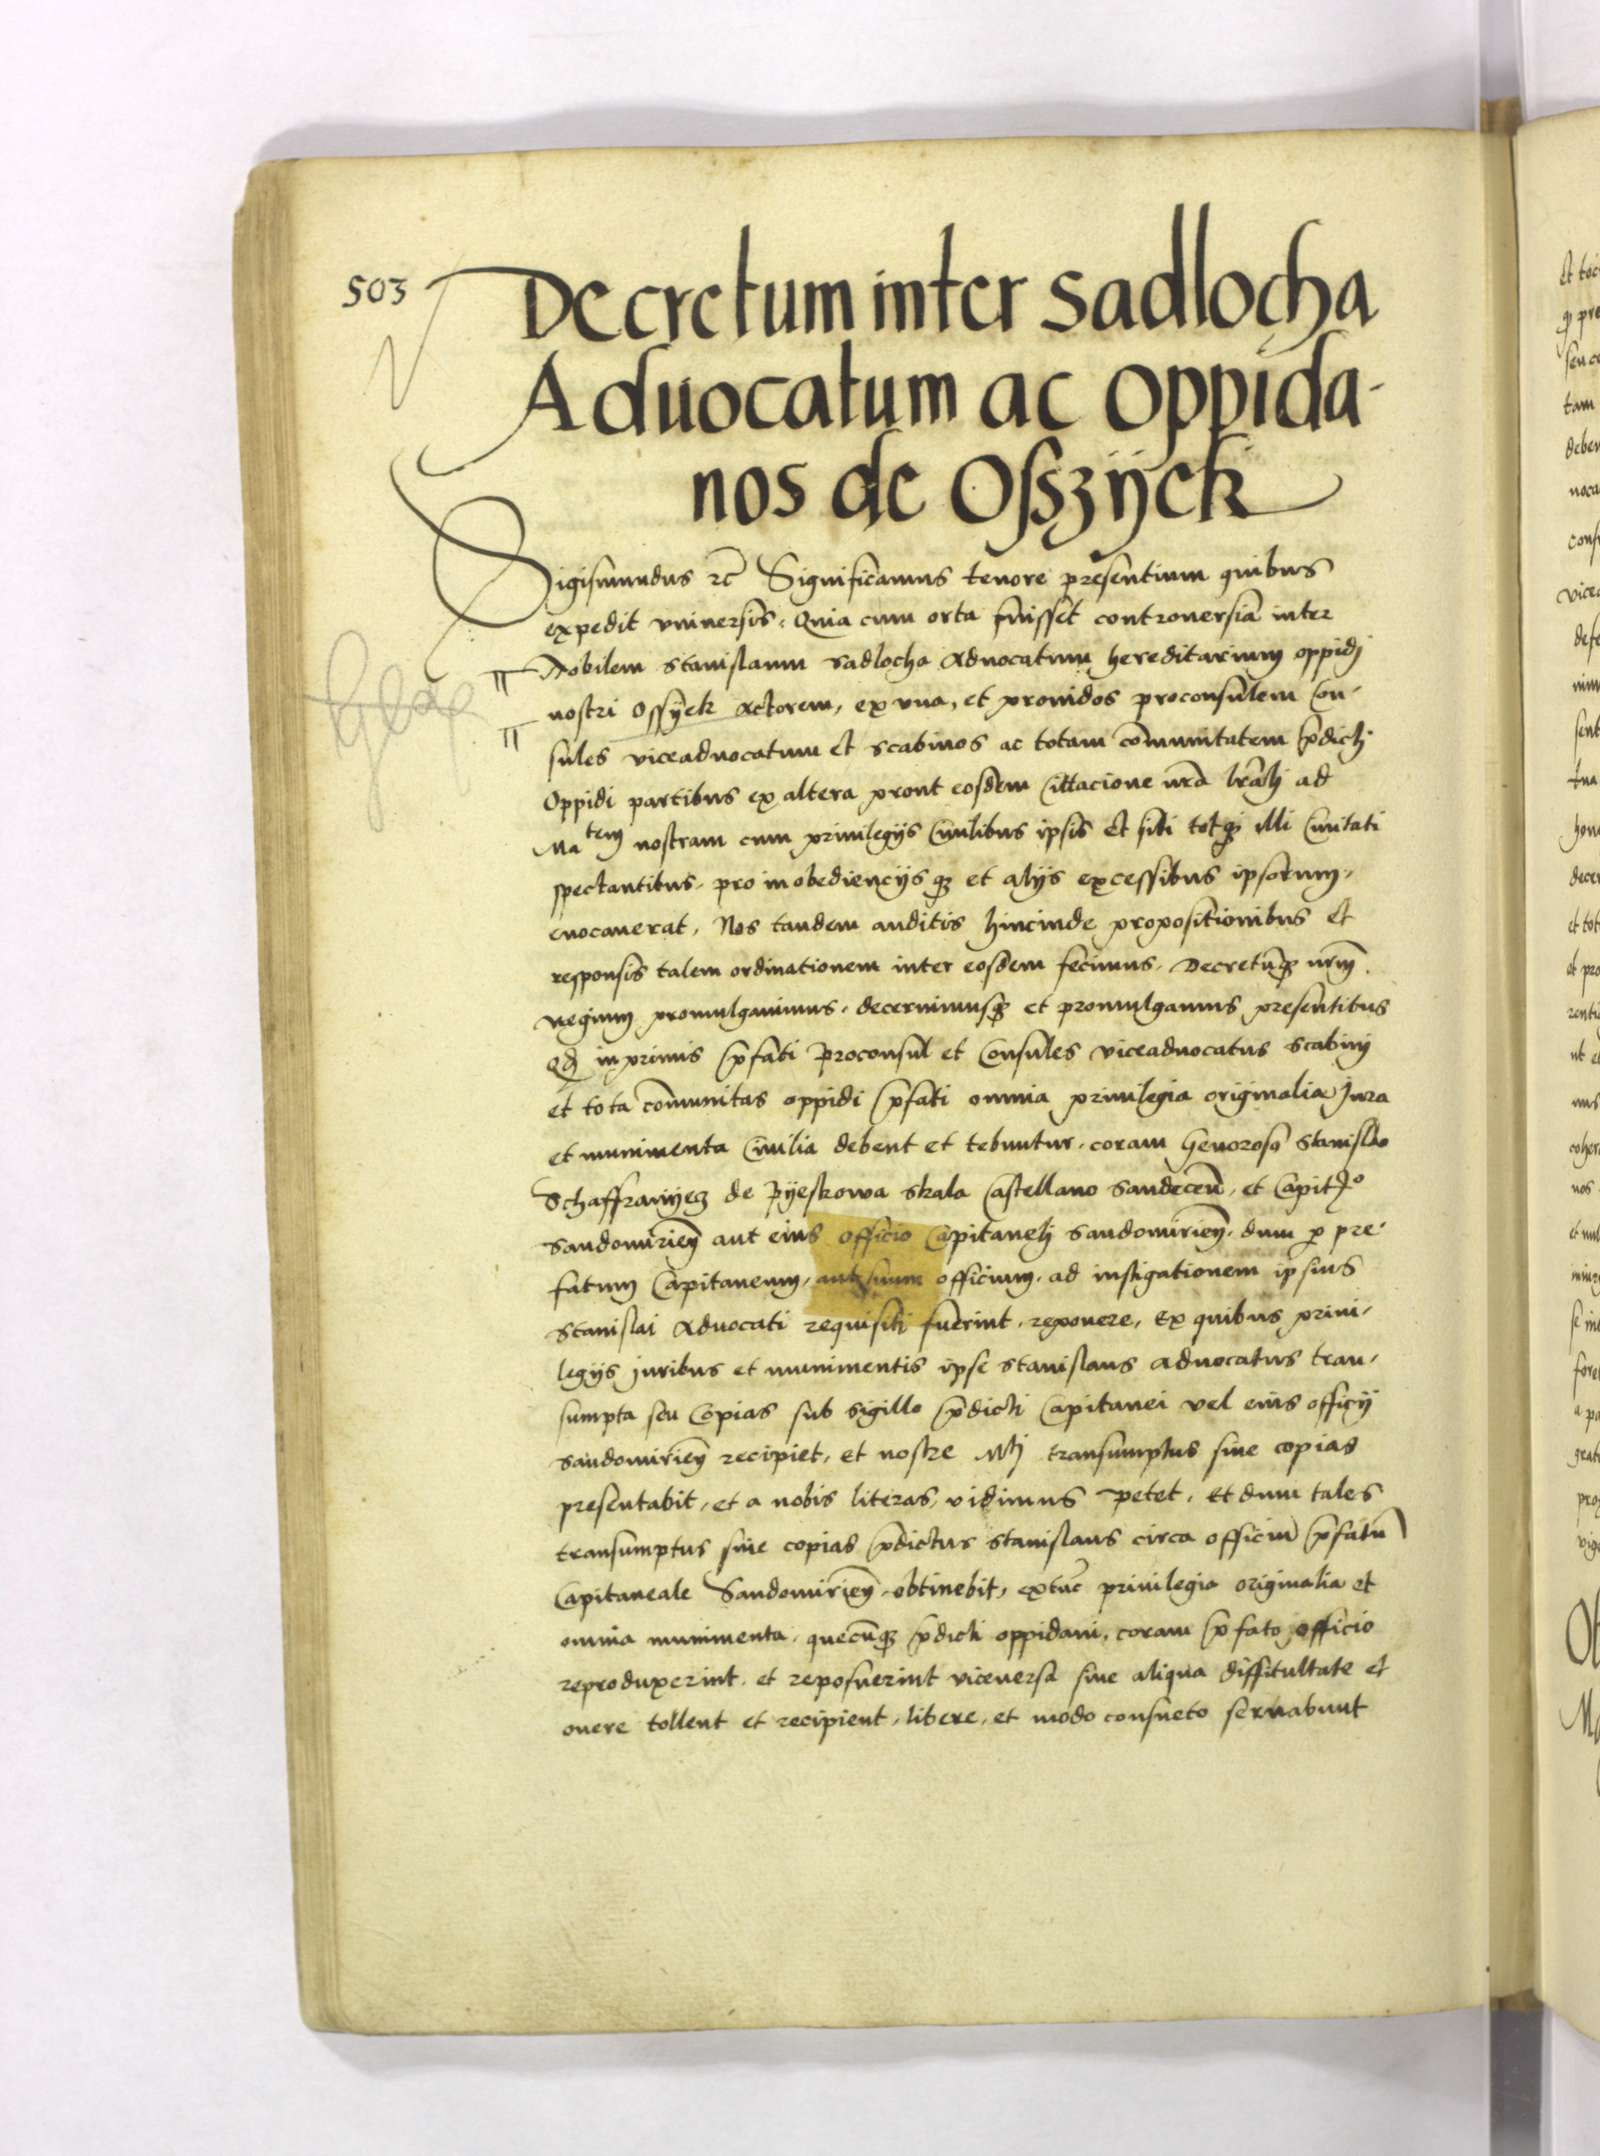 503
Decretum inter Sadlocha
Aduocatum ac oppida-
nos de Osszÿek
Sigismundus rc̄ Significamus tenore presentium quibus
expedit vniuersis, Quia cum orta fuisset controuersia inter
Nobilem Stanislaum Sadlocha Aduocatum hereditarium oppidi
nostri Ossÿek Actorem, ex vna, et prouidos proconsulem Con-
sules viceaduocatum et scabinos ac totam com̄unitatem p̄dicti
Oppidi partibus ex altera prout eosdem Cittacione nr̄a lr̄ali ad
Ma tem nostram cum priuilegijs Ciuilibus ipsis et siti totq̃ illi Ciuitati
spectantibus, pro inobediencijs q̃ et alijs excessibus ipsorum,
euocauerat, Nos tandem auditis hincinde propositionibus et
responsis talem ordinationem inter eosdem fecimus, Decretūq̃ nr̄m
regium promulgauimus, decernimusq̃ et promulgamus presentibus
Qd̄ inprimis p̄fati Proconsul et Consules viceaduocatus scabini
et tota com̄unitas oppidi p̄fati omnia priuilegia originalia Jura
et munimenta Ciuilia debent et tebuntur, coram Generoso Stanislao
Schaffranÿecz de Pÿeskowa skala Castellano Sandeceñ, et Capit̄o
Sandomirieñ aut eius officio Capitaneli Sandomirieñ, dum p pre-
fatum Capitaneum, aut suum officium, ad instigationem ipsius
Stanislai Aduocati requisiti fuerint, reponere, Ex quibus priui-
legijs juribus et munimentis ipse Stanislaus aduocatus tran-
sumpta seu Copias sub sigillo p̄dicti Capitanei vel eius officij
Sandomirieñ recipiet, et nostre Mti transumptus siue copias
presentabit, et a nobis literas, vidimus petet, Et dum tales
transumptus siue copias p̄dictus Stanislaus circa officiū p̄fatū
Capitaneale Sandomirieñ obtinebit, extūc priuilegia originalia et
omnia munimenta, quecūq̃ p̄dicti oppidani, coram p̄fato officio
reproduxerint, et reposuerint viceuersa sine aliqua diffitultate et
onere tollent et recipient, libere, et modo consueto seruabunt